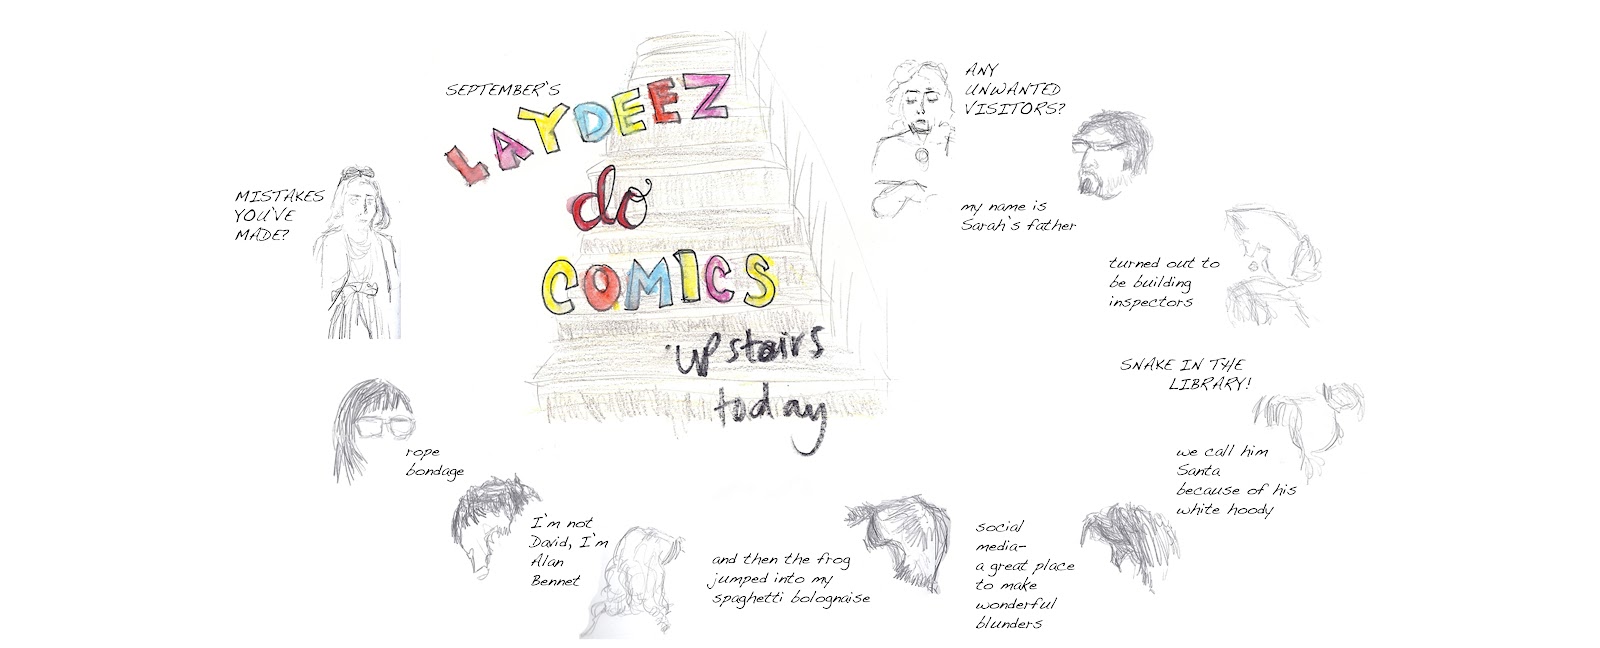 SEPTEMBER'S
LAYDEEZ
do
COMICS
upstairs
today
MISTAKES
YOU'VE
MADE?
ANY
UNWANTED
VISITORS?
my name is
Sarah's father
turned out to
be building
inspectors
SNAKE IN THE
LIBRARY!
we call him
Santa
because of his
white hoody
social
media-
a great place
to make
wonderful
blunders
and then the frog
jumped into my
spaghetti bolognaise
I'm not
David, I'm
Alan
Bennet
rope
bondage